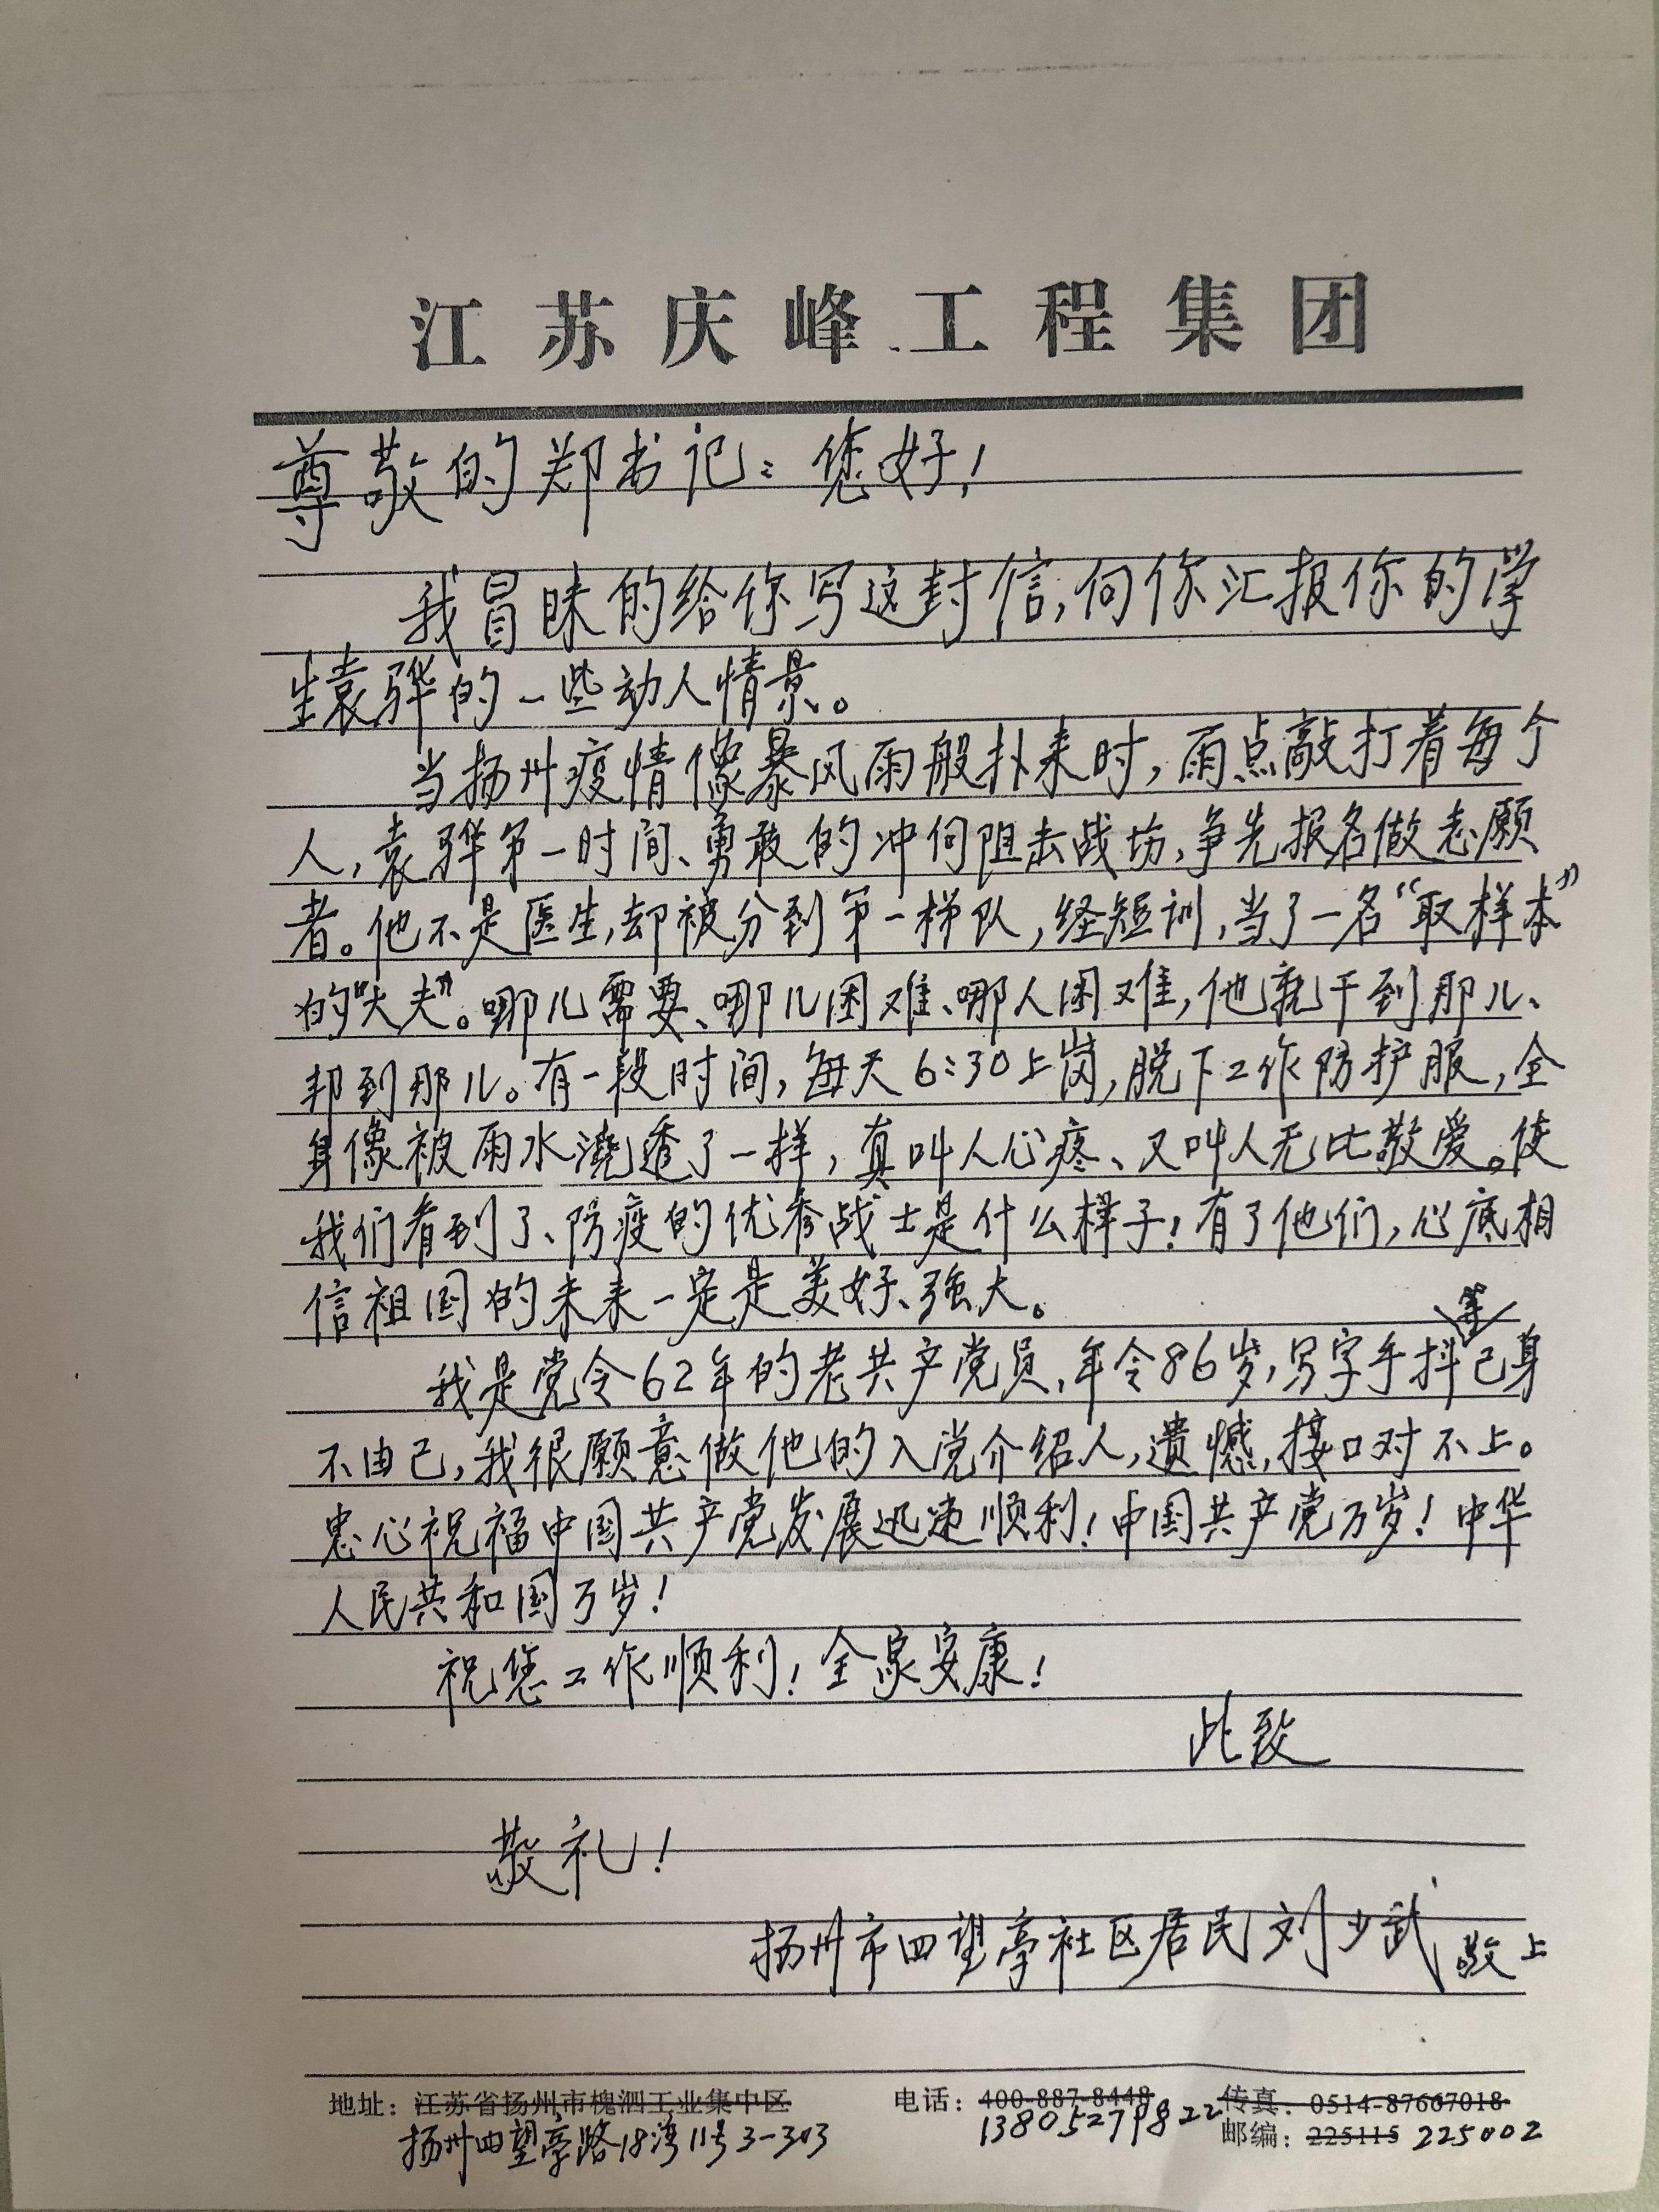 江苏庆峰工程集团
尊敬的郑书记：您好！
我冒昧的给你写这封信，向你汇报你的学
生袁骅的一些动人情景。
当扬州疫情像暴风雨般扑来时，雨点敲打着每个
人，袁骅第一时间、勇敢的冲向阻击战场，争先报名做志愿
者。他不是医生，却被分到第一梯队，经短训，当了一名“取样本”
的“大夫”。哪儿需要、哪儿困难、哪人困难，他就干到那儿、
帮到那儿。有一段时间，每天6:30上岗，脱下工作防护服，全
身像被雨水浇透了一样，真叫人心疼、又叫人无比敬爱。使
我们看到了、防疫的优秀战士是什么样子！有了他们，心底相
信祖国的未来一定是美好、强大。
我是党令62年的老共产党员，年令86岁，写字手抖已身
不由己，我很愿意做他的入党介绍人，遗憾，接口对不上。
忠心祝福中国共产党发展迅速顺利！中国共产党万岁！中华
人民共和国万岁！
祝您工作顺利！全家安康！
此致
敬礼！
扬州市四望亭社区居民刘少武 敬上
地址：江苏省扬州市槐泗工业集中区 电话：400-887-8448 传真：0514-87667018
扬州四望亭路18湾11号3-303 13805279822 邮编：225115 225002